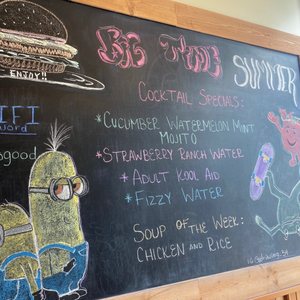 BIG TIME
SUMMER
ENJOY!!
COCKTAIL SPECIALS:
*CUCUMBER WATERMELON MINT
MOJITO
*STRAWBERRY RANCH WATER
*ADULT KOOL AID
*FIZZY WATER
SOUP OF THE WEEK:
CHICKEN AND RICE
IFI
word
ogood